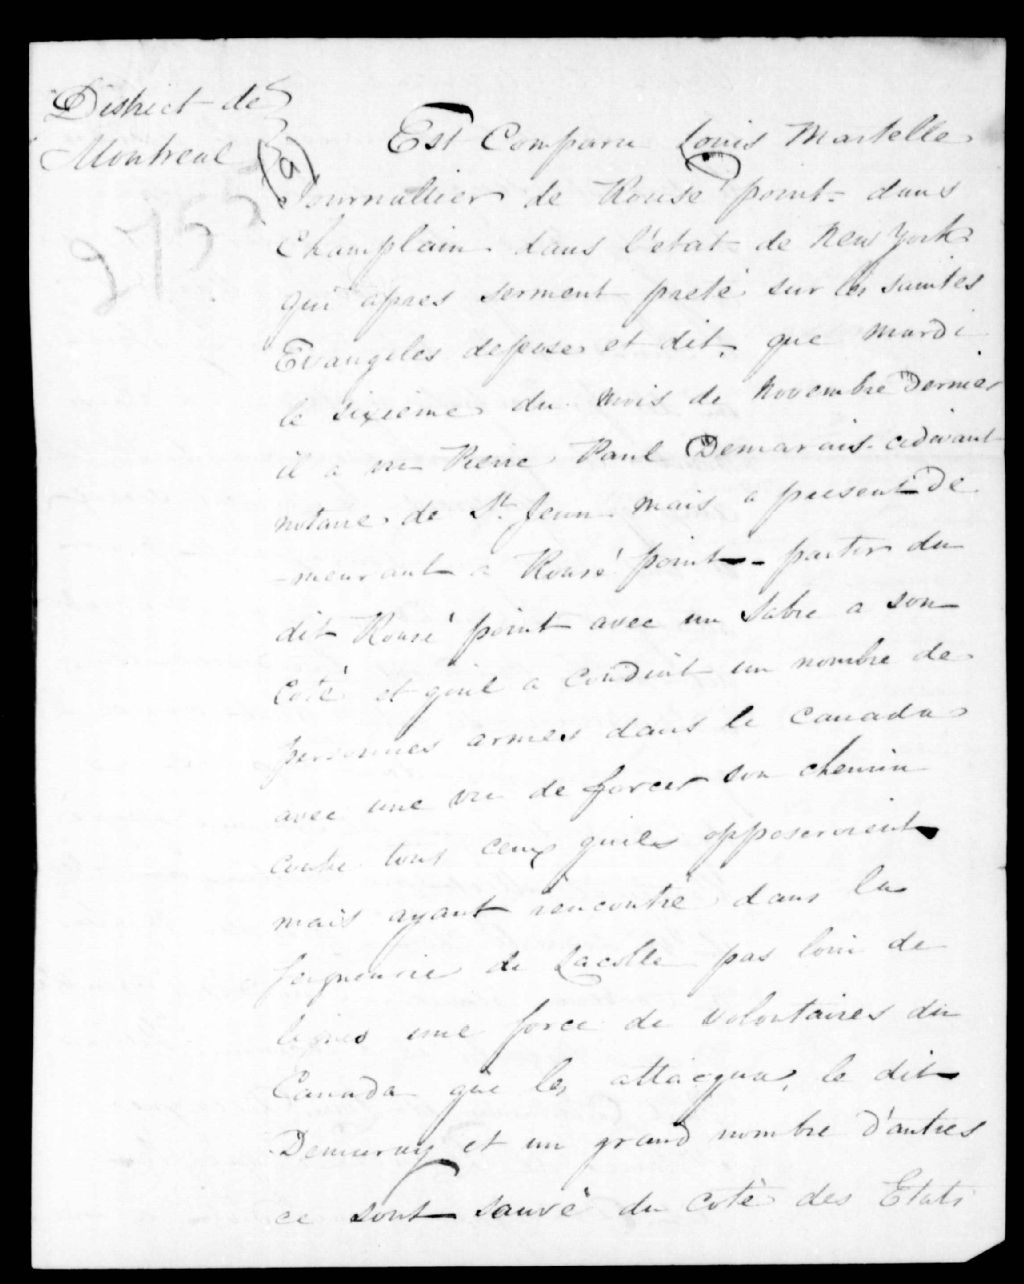 District de
Montreal
2755
Est Comparu Louis Martelle
Journallier de Rouse point dans
Champlain dans l'etat de New York
qui apres serment preté sur les saintes
Evangeles depose et dit, que mardi
le sixieme du mois de Novembre Dernier
il a vu Rene Paul Demarais cidevant
notaire de St. Jean mais a present De
-meurant a Rousé point - partir du
dit Rousé point avec un Sabre a son
coté et qu'il a condiut un nombre de
personnes armes dans le Canada
avec une vu de forcer son chemin
contre tout ceux quils opposeroient
mais ayant rencontré dans la
seigneurie de Lacolle pas loin de
lignes une force de volontaires du
Canada que les attacqua, le dit
Demaray et un grand nombre d'autres
ce sont sauvé du coté des Etats